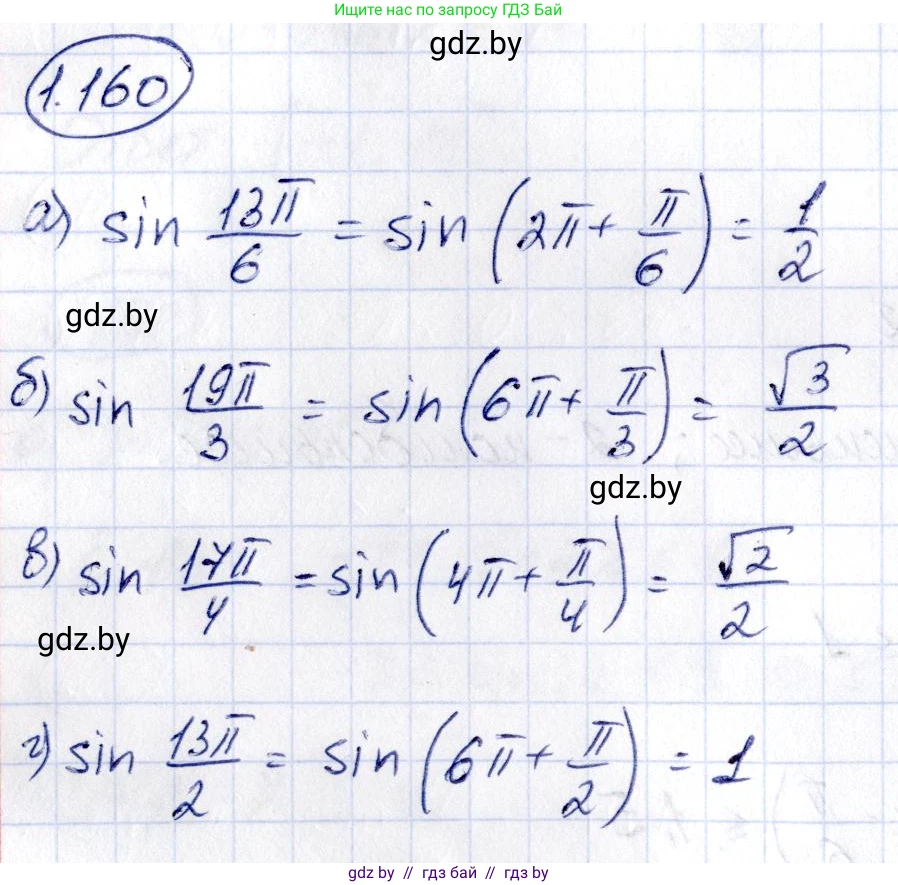 Ищите нас по запросу ГДЗ Бай
gdz.by
1.160
а) sin 13π/6 = sin (2π + π/6) = 1/2
gdz.by
б) sin 19π/3 = sin (6π + π/3) = √3/2
gdz.by
в) sin 17π/4 = sin (4π + π/4) = √2/2
gdz.by
г) sin 13π/2 = sin (6π + π/2) = 1
gdz.by // гдз бай // gdz.by